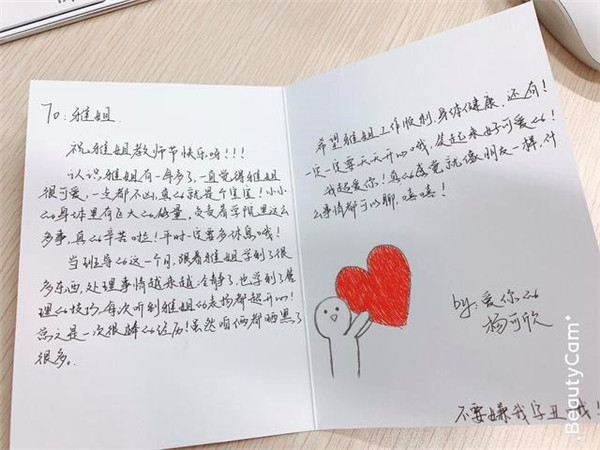 To: 雅姐
祝雅姐教师节快乐呀!!!
认识雅姐有一年多了,一直觉得雅姐
很可爱,一点都不凶,真的就是个宝宝!小小
的身体里有巨大的能量,负责着学院里这么
多事,真的辛苦啦!平时一定要多休息哦!
当班导的这一个月,跟着雅姐学到了很
多东西,处理事情越来越冷静了,也学到了管
理的技巧,每次听到雅姐的表扬都超开心!
总之是一次很棒的经历!虽然咱俩都晒黑了
很多。
希望雅姐工作顺利,身体健康,还有!
一定一定要天天开心哦,笑起来好可爱的!
我超爱你!真的感觉就像朋友一样,什
么事情都可以聊,嘻嘻!
by: 爱你的
杨可欣
不要嫌我字丑哦!
BeautyCam